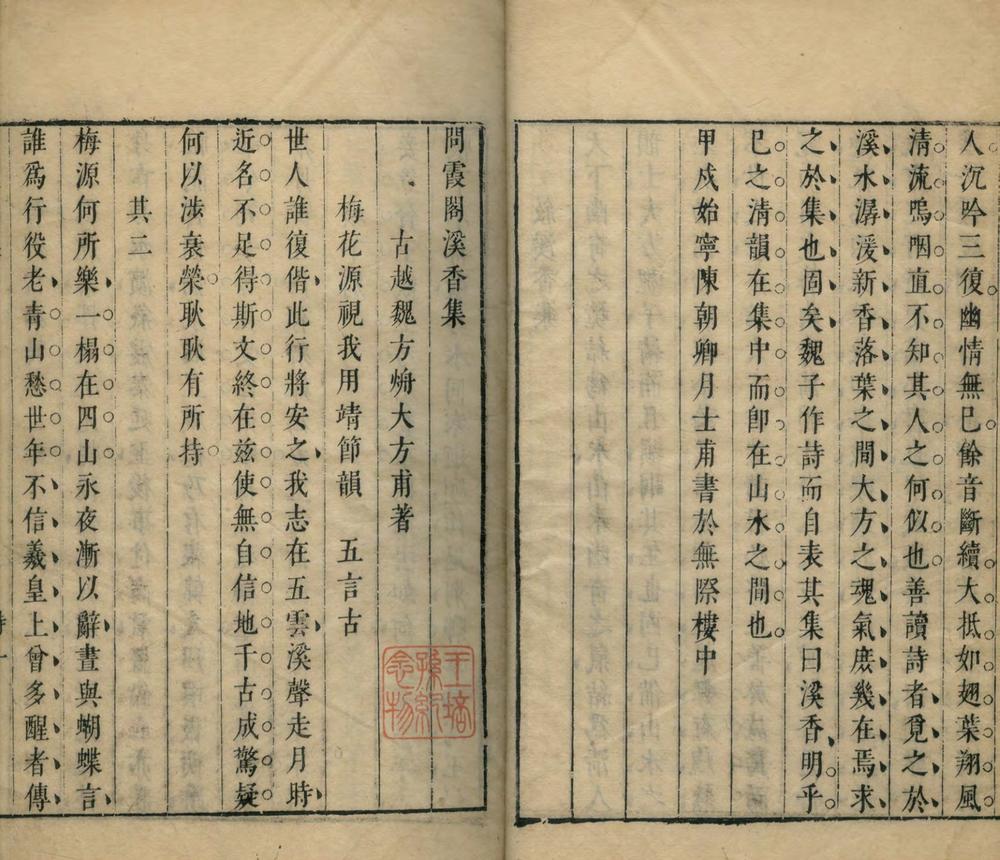 人沉吟三復幽情無已餘音斷續大抵如翅葉翔風
清流嗚咽直不知其人之何似也善讀詩者覓之於
溪水潺湲新香落葉之間大方之魂氣庶幾在焉求
之於集也固矣魏子作詩而自表其集曰溪香明乎
已之清韻在集中而卽在山水之間也
甲戌始寧陳朝卿月士甫書於無際樓中
問霞閣溪香集
古越魏方焴大方甫著
梅花源視我用靖節韻 五言古
世人誰復偕此行將安之我志在五雲溪聲走月時
近名不足得斯文終在茲使無自信地千古成驚疑
何以涉衰榮耿耿有所持
其二
梅源何所樂一榻在四山永夜漸以辭晝與蝴蝶言
誰爲行役老青山愁世年不信羲皇上曾多醒者傳
念物